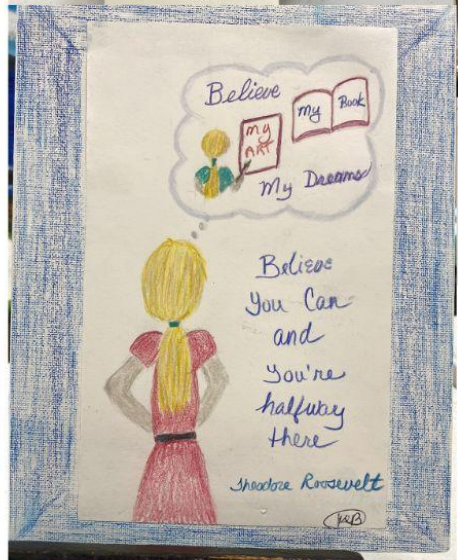 Believe
my Book
my
ART
My Dreams
Believe
You Can
and
You're
halfway
there
Theodore Roosevelt